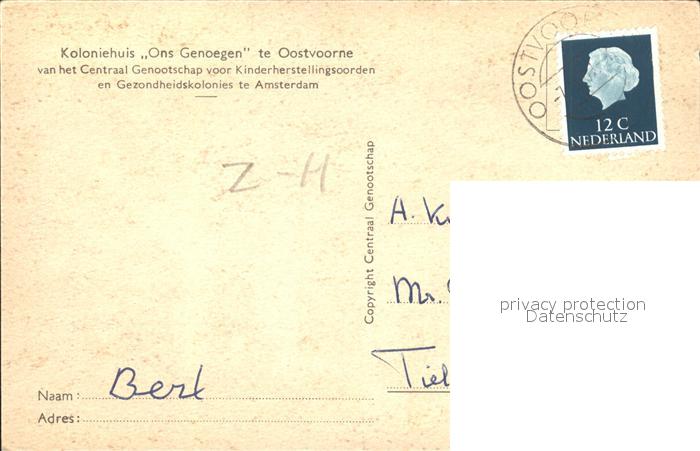 Koloniehuis „Ons Genoegen” te Oostvoorne
van het Centraal Genootschap voor Kinderherstellingsoorden
en Gezondheidskolonies te Amsterdam
OOSTVOO
12 C
NEDERLAND
Z-H
Copyright Centraal Genootschap
A.
Mr.
Tiel
privacy protection
Datenschutz
Naam: Bert
Adres: